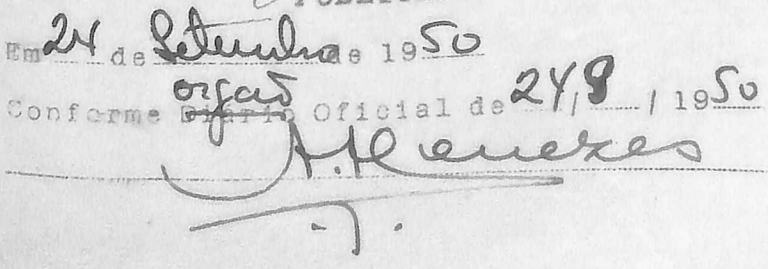 Em 24 de Setembro de 1950
orgaõ
Conforme Diario Oficial de 24/9/1950
A. Menezes